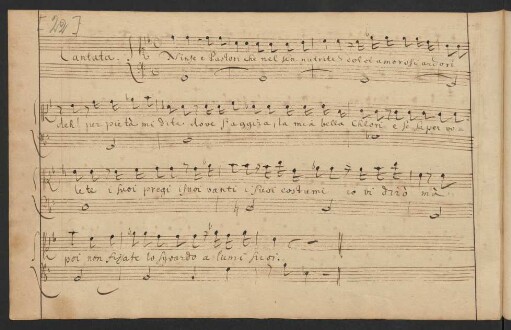 [22]
Cantata.
Ninfe e Pastori che nel sen nutrite caldi amorosi ardori
deh! per pietà mi dite dove s'aggira, la mia bella Chlori e se saper vo-
lete i suoi pregi i suoi vanti i suoi costumi io vi dirò ma
poi non fissate lo sguardo a lumi suoi.